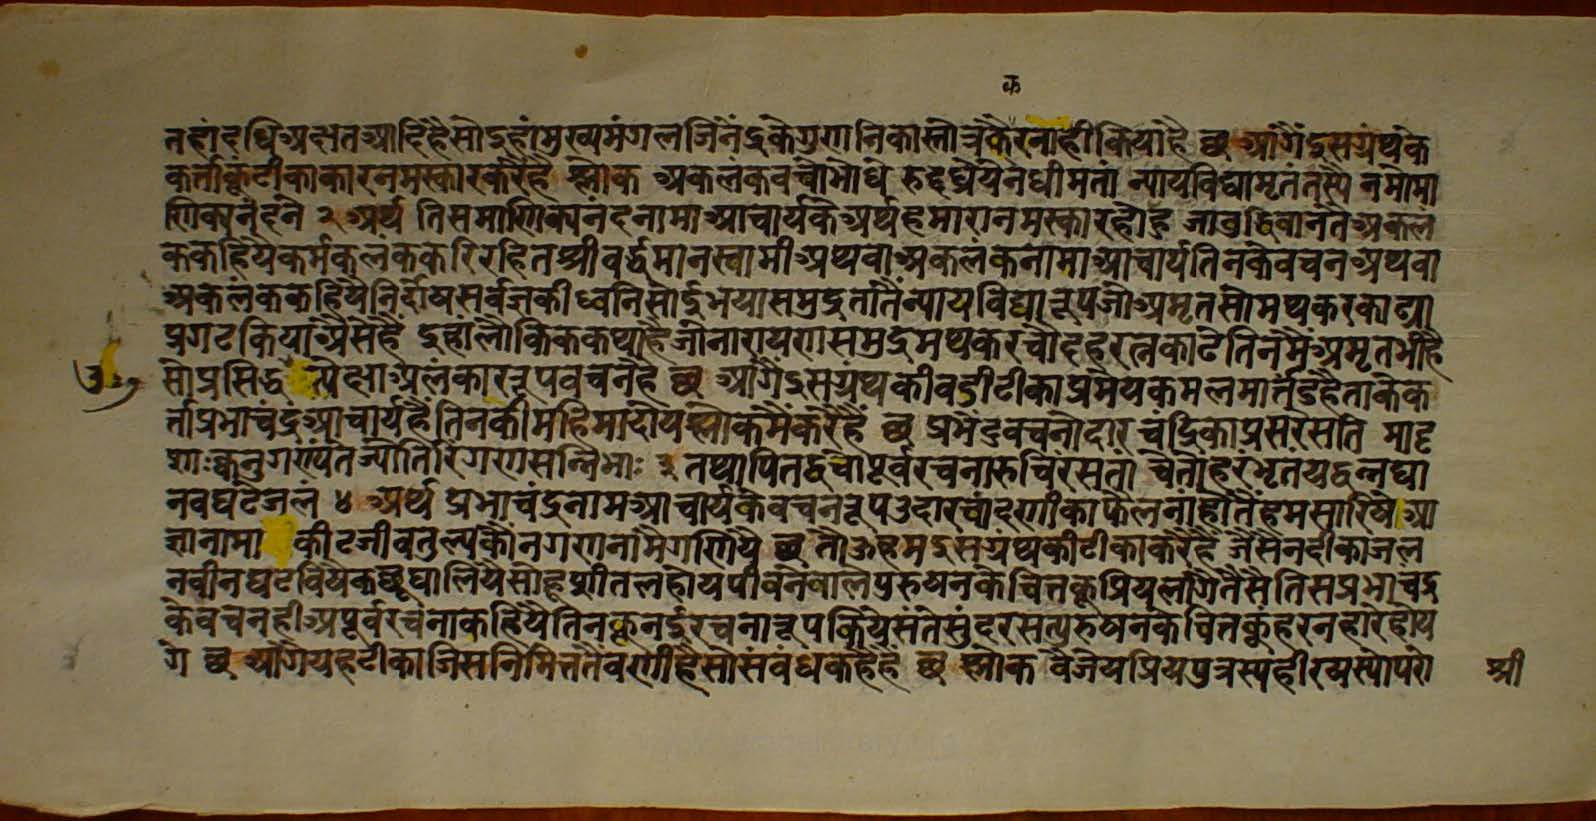 क
नहां दधि अक्षत आदि है सो इहां मुख्य मंगल जिनेंद्रके गुणनिका स्तोत्रकैरनाही किया है छ आगैं इस ग्रंथके
कर्ताकूं टीकाकार नमस्कार करै है श्लोक अकलंकवचोंभोधे रुद्दध्रे येन धीमतां न्यायविद्यामृतं तस्मै नमो मा
णिक्यनंदिने २ अर्थ तिस माणिक्यनंद नामा आचार्यके अर्थ हमारा नमस्कार होहु जो बुद्धिवानने अकल
क कहिये कर्मकलंककरि रहित श्रीवर्द्धमानस्वामी अथवा अकलंकनामा आचार्य तिनके वचन अथवा
अकलंक कहिये निर्दोष सर्वज्ञकी ध्वनि सोई भया समुद्र तातैं न्यायविद्यारूप जो अमृत सो मथकर काढ्या
प्रगट किया अैसे है इहां लौकिक कथा है जो नारायण समुद्र मथकर चौदह रत्न काढे तिनमै अमृत भी है
सो प्रसिद्ध अलंकाररूप वचन है छ आगैं इस ग्रंथकी बडी टीका प्रमेयकमलमार्तंड है ताके क
र्ता प्रभाचंद्र आचार्य है तिनकी महिमा दोय श्लोकमैं करै हैं छ प्रभेंदुवचनोदारचंद्रिकाप्रसरे सति मादृ
शाः क्वनु गण्यंते ज्योतिरिंगणसन्निभाः ३ तथापि तद्वचोपूर्वरचनारुचिरं सतां चेतोहरं भृतं यद्वन्नद्या
नवघटे जलं ४ अर्थ प्रभाचंद्रनाम आचार्यके वचनरूप उदार चांदणीका फैलना होतैं हम सारिषे आ
ज्ञानामा कीटजीवतुल्य कौन गणनामै गणिये छ तोऊ हम इस ग्रंथकी टीका करै हैं जैसे नदीका जल
नवीन घटविषै कछू घालियै सोहू शीतल होय पीवनेवाले पुरुषनके चित्तकू प्रिय लागै तैसै तिस प्रभाचंद्र
के वचनही अपूर्व रचना कहिये तिनकू नई रचनारूप किये संते सुंदर सत्पुरुषनके चितकूं हरनहारे होय
गे छ आगै यह टीका जिस निमित्ततै वणी है सो संबंध कहै हैं छ श्लोक वैजेयप्रियपुत्रस्य हीरपस्योपरो
श्री